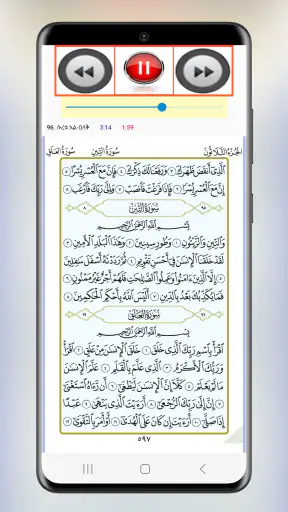 96. ሱረቱ አል-ዐለቅ 3:14 1:59
الجزء الثلاثون سورة التين سورة العلق
ٱلَّذِىٓ أَنقَضَ ظَهْرَكَ ٣ وَرَفَعْنَا لَكَ ذِكْرَكَ ٤ فَإِنَّ مَعَ ٱلْعُسْرِ يُسْرًا ٥
إِنَّ مَعَ ٱلْعُسْرِ يُسْرًا ٦ فَإِذَا فَرَغْتَ فَٱنصَبْ ٧ وَإِلَىٰ رَبِّكَ فَٱرْغَب ٨
٩٥ سُورَةُ التِّينِ ٨
بِسْمِ ٱللَّهِ ٱلرَّحْمَٰنِ ٱلرَّحِيمِ
وَٱلتِّينِ وَٱلزَّيْتُونِ ١ وَطُورِ سِينِينَ ٢ وَهَٰذَا ٱلْبَلَدِ ٱلْأَمِينِ ٣
لَقَدْ خَلَقْنَا ٱلْإِنسَٰنَ فِىٓ أَحْسَنِ تَقْوِيمٍ ٤ ثُمَّ رَدَدْنَٰهُ أَسْفَلَ سَٰفِلِينَ
٥ إِلَّا ٱلَّذِينَ ءَامَنُوا۟ وَعَمِلُوا۟ ٱلصَّٰلِحَٰتِ فَلَهُمْ أَجْرٌ غَيْرُ مَمْنُونٍ ٦
فَمَا يُكَذِّبُكَ بَعْدُ بِٱلدِّينِ ٧ أَلَيْسَ ٱللَّهُ بِأَحْكَمِ ٱلْحَٰكِمِينَ ٨
٩٦ سُورَةُ العَلَقِ ١٩
بِسْمِ ٱللَّهِ ٱلرَّحْمَٰنِ ٱلرَّحِيمِ
ٱقْرَأْ بِٱسْمِ رَبِّكَ ٱلَّذِى خَلَقَ ١ خَلَقَ ٱلْإِنسَٰنَ مِنْ عَلَقٍ ٢ ٱقْرَأْ
وَرَبُّكَ ٱلْأَكْرَمُ ٣ ٱلَّذِى عَلَّمَ بِٱلْقَلَمِ ٤ عَلَّمَ ٱلْإِنسَٰنَ
مَا لَمْ يَعْلَمْ ٥ كَلَّآ إِنَّ ٱلْإِنسَٰنَ لَيَطْغَىٰٓ ٦ أَن رَّءَاهُ ٱسْتَغْنَىٰٓ
٧ إِنَّ إِلَىٰ رَبِّكَ ٱلرُّجْعَىٰٓ ٨ أَرَءَيْتَ ٱلَّذِى يَنْهَىٰ ٩ عَبْدًا
إِذَا صَلَّىٰٓ ١٠ أَرَءَيْتَ إِن كَانَ عَلَى ٱلْهُدَىٰٓ ١١ أَوْ أَمَرَ بِٱلتَّقْوَىٰٓ ١٢
٥٩٧